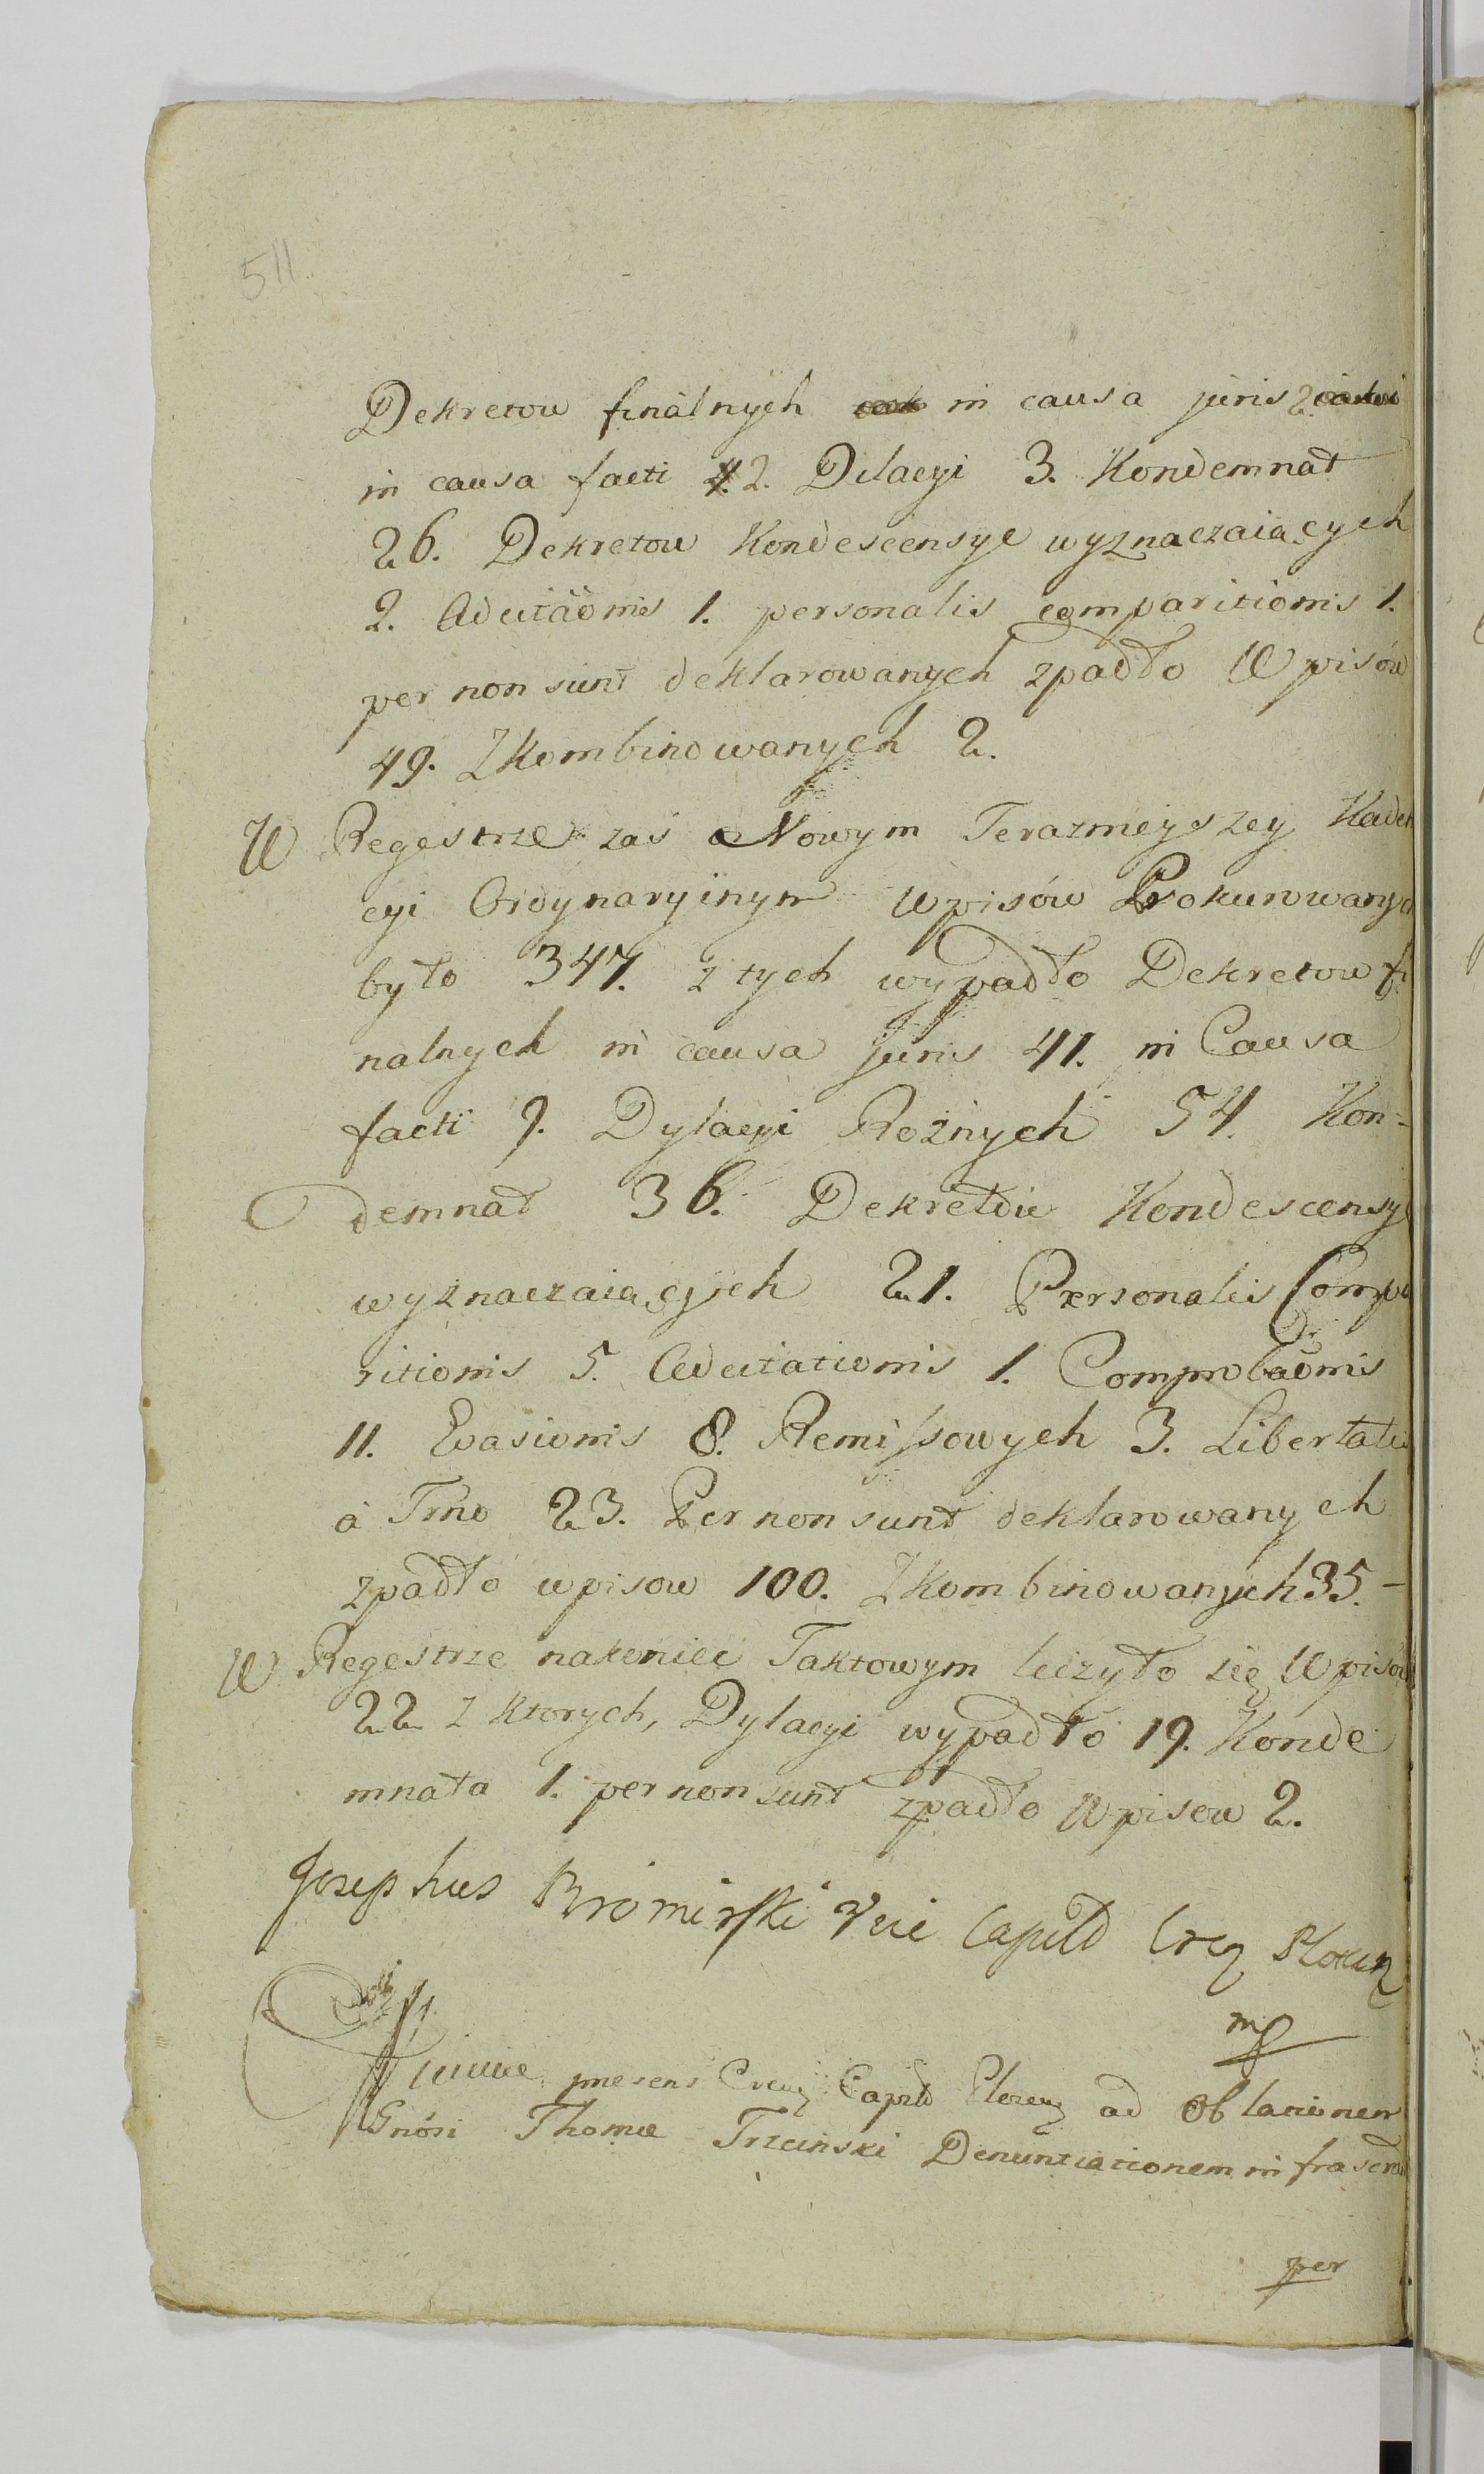 511
Dekretow finalnych in causa juris 2.
in causa facti 2. Dilacyi 3. Kondemnat
26. Dekretow Kondescensye wyznaczaiących
2. Adcitaõnis 1. personalis comparitionis 1.
per non sunt deklarowanych zpadło Wpisów
49. Zkombinowanych 2.
W Regestrze zaś Nowym Teraznieyszey Kade
cyi Ordynaryinym Wpisów Prokurowanych
było 347. z tych wypadło Dekretow fi
nalnych in causa juris 41. in Causa
facti 9. Dylacyi Rożnych 54. Kon-
demnat 36. Dekretów Kondescensye
wyznaczaiących 21. Personalis Compa
ritionis 5. Adcitationis 1. Comprobaõnis
11. Evasionis 8. Remissowych 3. Libertatis
à Trno 23. Per non sunt deklarowanych
zpadło wpisow 100. Zkombinowanych 35. -
W Regestrze nakoniec Taktowym liczyło się Wpisów
22 z ktorych, Dylacyi wypadło 19. Konde
mnata 1. per non sunt zpadło Wpisow 2.
Josephus Bromirski Vice Capitð Plocen
mp
presens Capitð Plocen ad Oblationem
Gnõsi Thomæ Trzcinski Denuntiationem infrascr
per